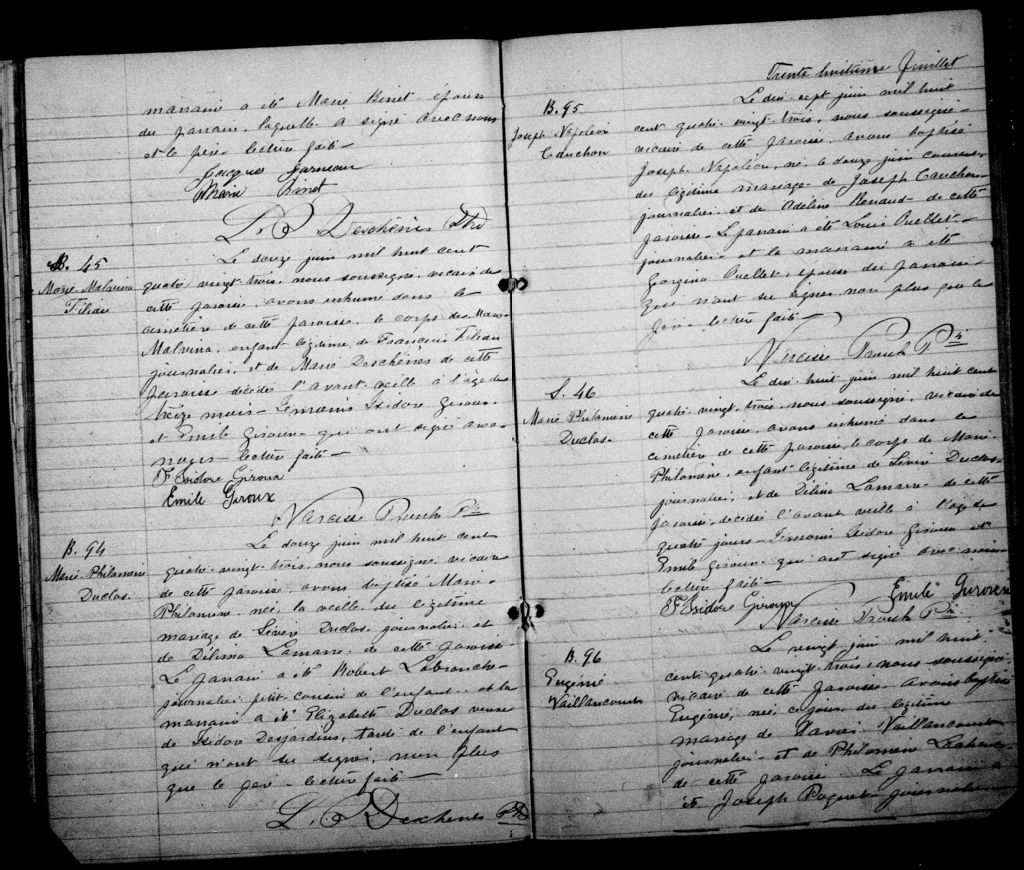 marraine a été Marie Binet épouse
du parrain, laquelle a signé avec nous
et le père lecture faite —
Jacques Garneau
Marie Binet
Deschênes Ptre
B. 45
Marie Malvina
Filiau
Le douze juin mil huit cent
quatre-vingt-trois, nous soussigné, vicaire de
cette paroisse, avons inhumé dans le
cimetière de cette paroisse, le corps de Marie
Malvina, enfant légitime de François Filiau
journalier, et de Marie Deschênes de cette
paroisse décédée l'avant-veille à l'âge de
mois — Témoins Isidore Giroux
et Emile Giroux qui ont signé avec
nous — lecture faite —
F Isidore Giroux
Emile Giroux
Narcisse Proulx Ptre
B. 94
Marie Philomène
Duclos.
Le douze juin mil huit cent
quatre-vingt-trois, nous soussigné, vicaire
de cette paroisse, avons baptisé Marie
Philomène, née la veille du légitime
mariage de Sévère Duclos journalier et
de Délima Lamarre de cette paroisse
Le parrain a été Robert Labranche
journalier petit-cousin de l'enfant et la
marraine a été Elizabeth Duclos veuve
de Isidore Desjardins, tante de l'enfant
qui n'ont su signer, non plus
que le père — lecture faite —
Deschênes Ptre
Trente huitième feuillet
B. 95
Joseph Napoléon
Cauchon
Le dix-sept juin mil huit
cent quatre-vingt-trois, nous soussigné
vicaire de cette paroisse, avons baptisé
Joseph Napoléon, né le douze juin courant,
du légitime mariage de Joseph Cauchon
journalier et de Adéline Renaud de cette
paroisse — Le parrain a été Louis Ouellet —
journalier et la marraine a été
Georgina Ouellet, épouse du parrain
qui n'ont su signer non plus que le
père — lecture faite —
Narcisse Proulx Ptre
S. 46
Marie Philomène
Duclos.
Le dix-huit juin mil huit cent
quatre-vingt-trois, nous soussigné, vicaire de
cette paroisse, avons inhumé dans le
cimetière de cette paroisse le corps de Marie
Philomène, enfant légitime de Sévère Duclos
journalier, et de Délima Lamarre de cette
paroisse, décédée l'avant-veille à l'âge de
quatre jours — Témoins Isidore Giroux et
Emile Giroux qui ont signé avec nous
lecture faite —
F Isidore Giroux Emile Giroux
Narcisse Proulx Ptre
B. 96
Eugénie
Vaillancourt
Le vingt juin mil huit
cent quatre-vingt-trois, nous soussigné
vicaire de cette paroisse avons baptisé
Eugénie, née, ce jour, du légitime
mariage de Vaillancourt
journalier et de Philomène
de cette paroisse Le parrain a
été Joseph Paquet journalier